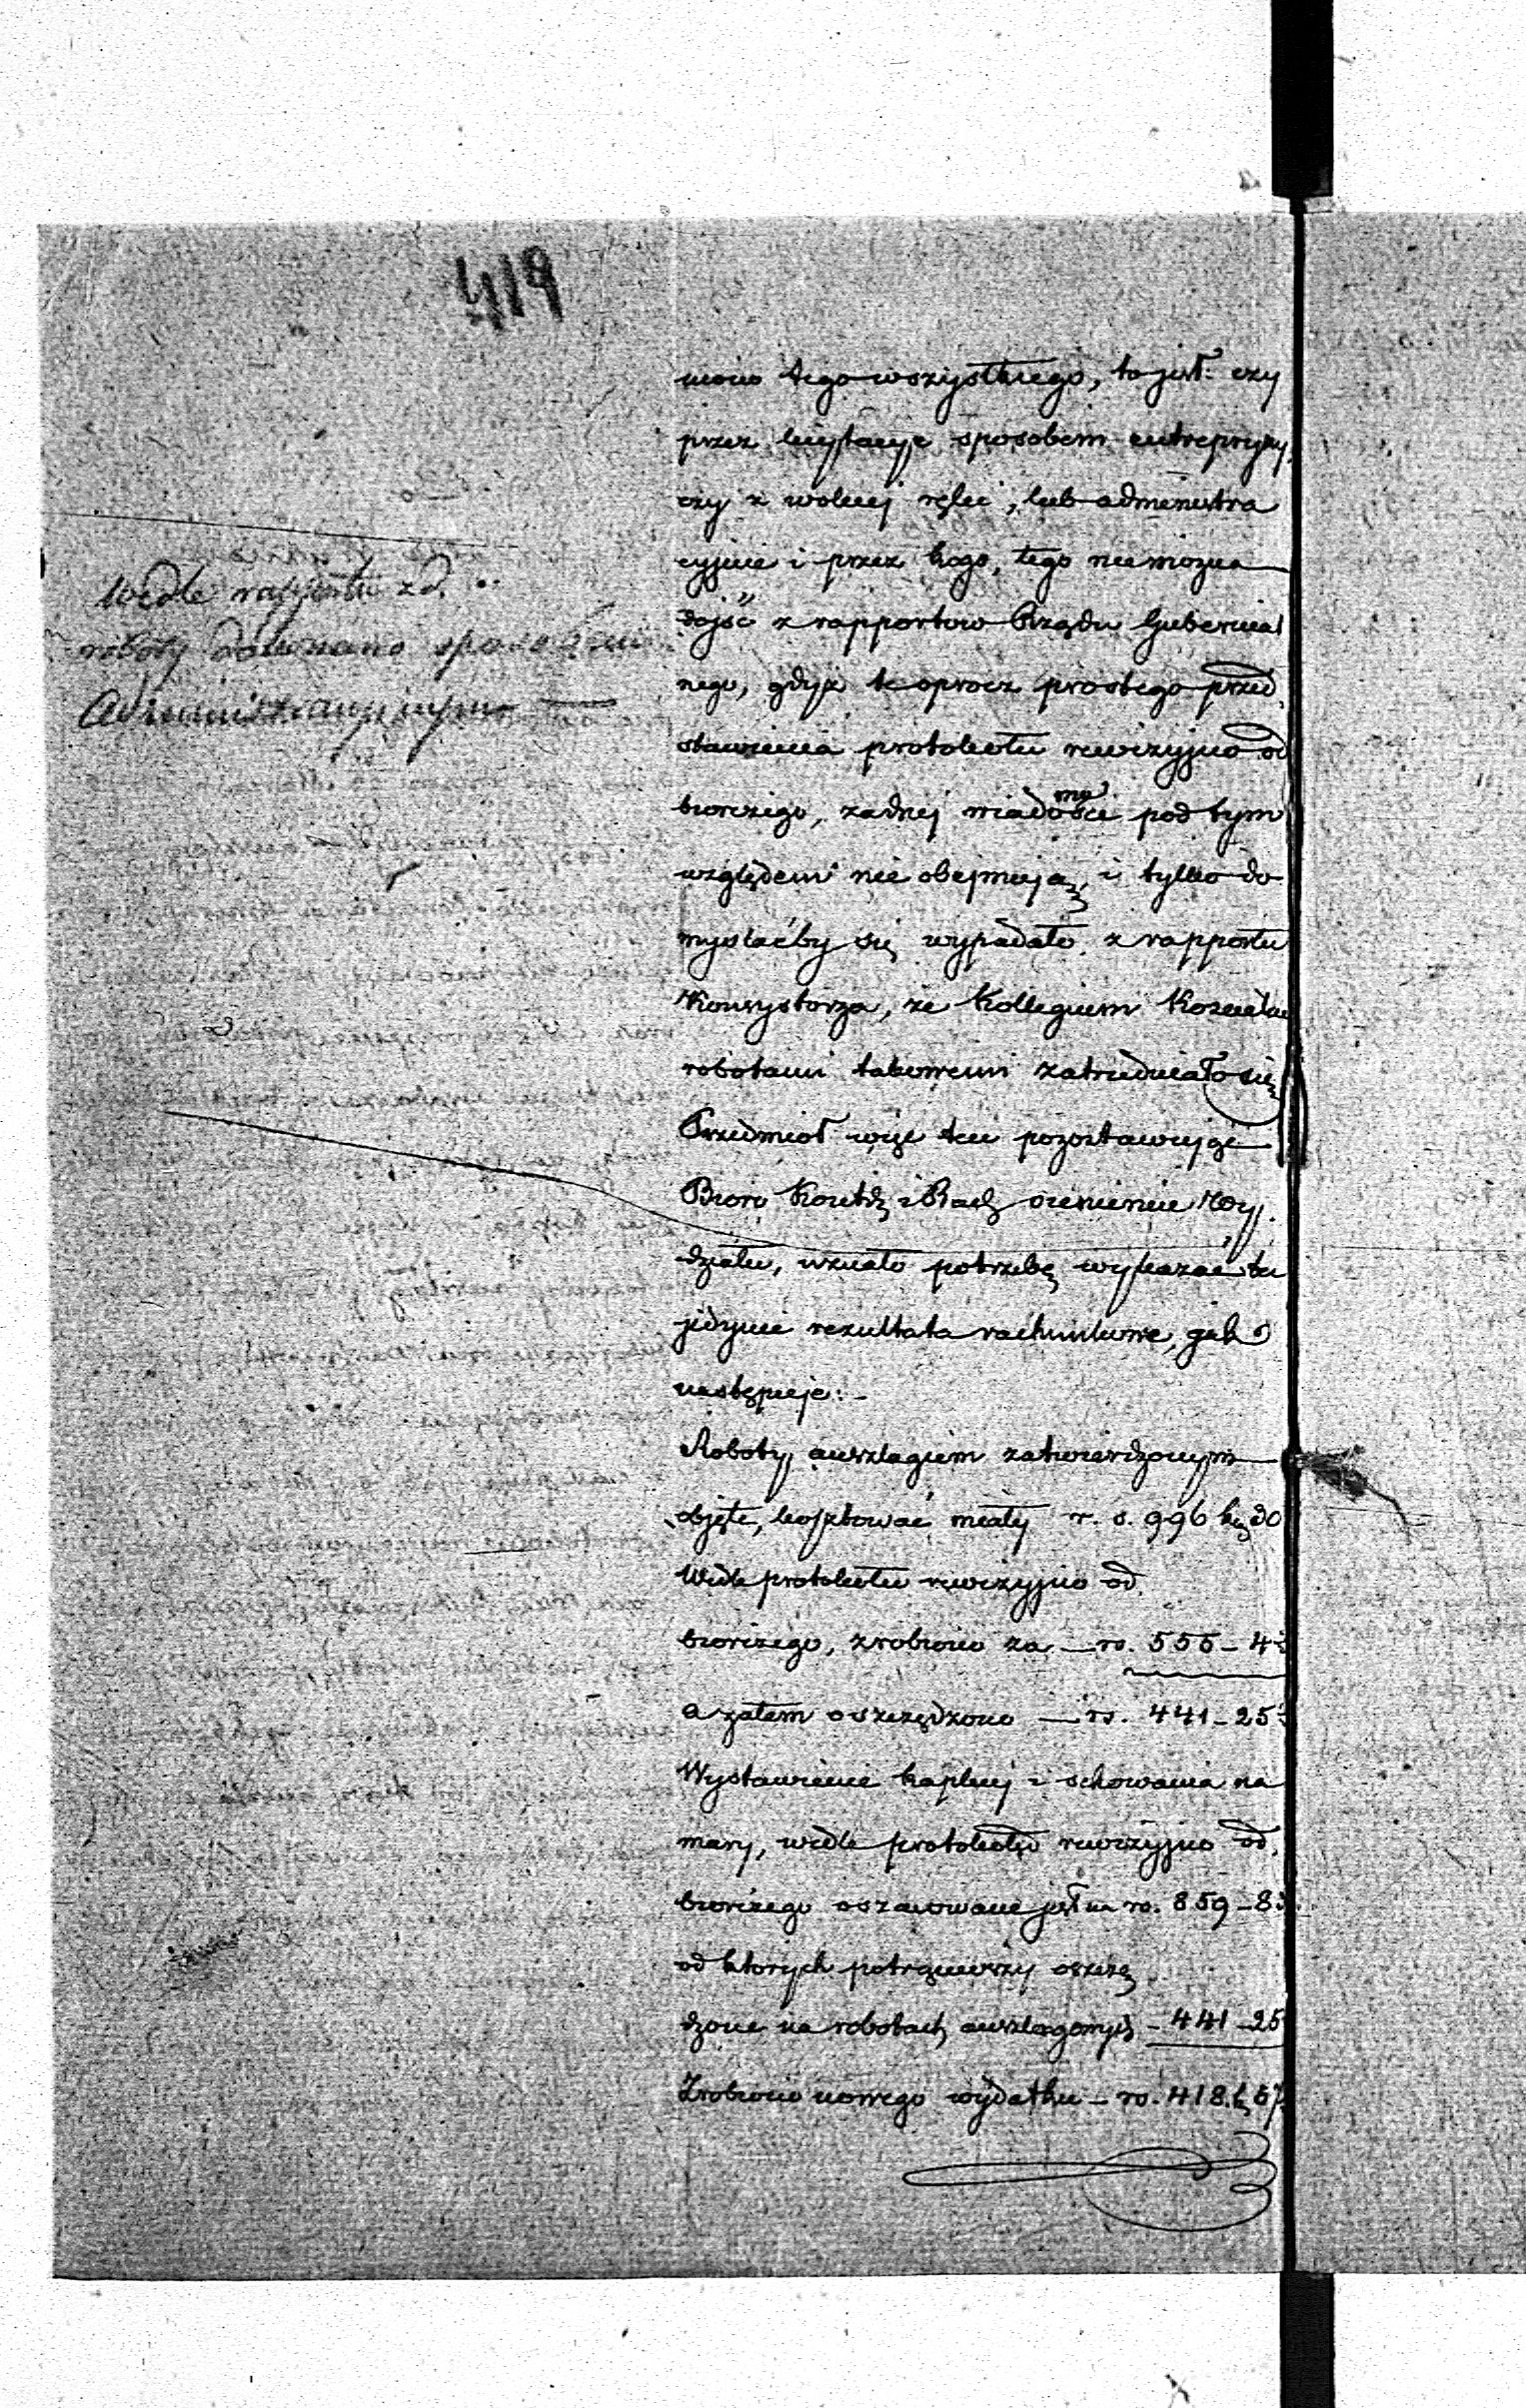 419
wedle rapportu z d.
roboty dokonano sposobem
Administracyjnym
niono tego wszystkiego, to jest: czy
przez licytacye sposobem entrepryzy,
czy z wolnej ręki, lub administra
cyjnie i przez kogo, tego nie można
dojść z rapportow Rządu Gubernial
nego, gdyż te oprocz prostego przed
stawienia protokołu rewizyjno od
biorczego, żadnej wiadomości pod tym
względem nie obejmują, i tylko do
myslaćby się wypadało z rapportu
Konsystorza, że Kollegium Kościelne
robotami takowemi zatrudniało się
Przedmiot więc ten pozostawując
Bióro Kontr i Rach ocenienie Wy
działu, uznało potrzebę wykazać tu
jedynie rezultata rachunkowe, jak
następuje:
Roboty anszlagiem zatwierdzonym
objęte, kosztować miały r. s. 996 k 30
Wedle protokołu rewizyjno od
biorczego, zrobiono za rs. 555 - 4
a zatem oszczędzono rs. 441 - 25
Wystawienie kaplicy i schowania na
mary, wedle protokołu rewizyjno od
biorczego oszacowane jest na rs. 859 - 8
od ktorych potrąciwszy oszczę
dzone na robotach anszlagowych - 441 - 25
Zrobiono nowego wydatku - rs. 418 k 57